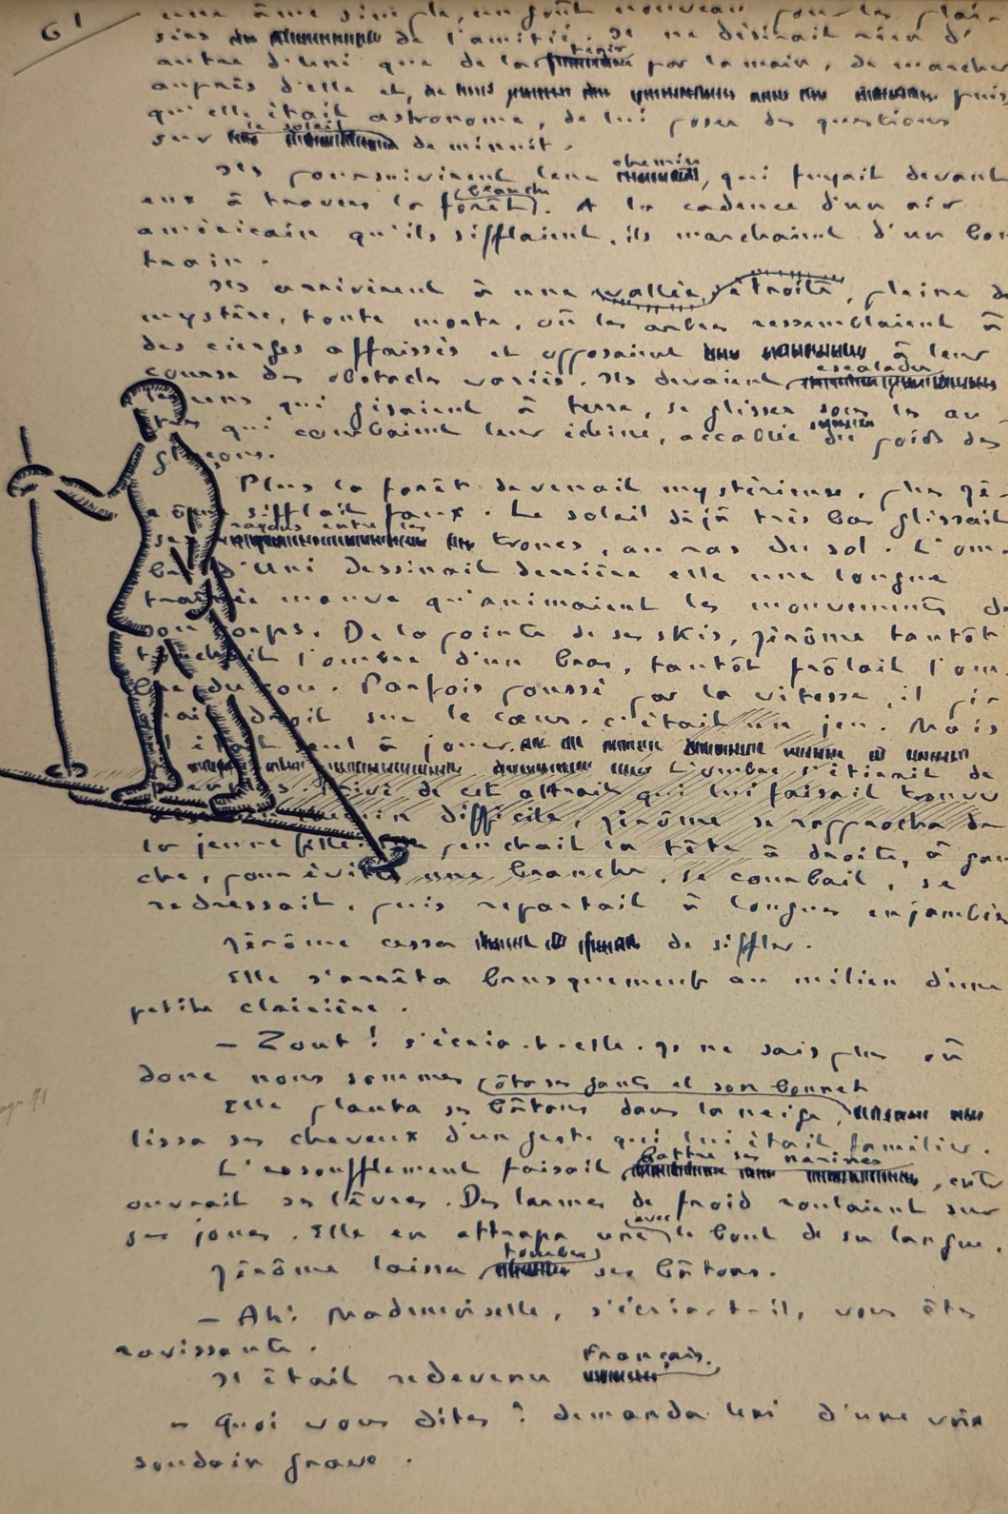 61
une âme simple, un goût nouveau pour les plai-
sirs de l'amitié. Il ne désirait rien d'
autre d'Uni que de la tenir par la main, de marcher
auprès d'elle et, puis
qu'elle était astronome, de lui poser des questions
sur le soleil de minuit.
Ils poursuivirent leur chemin, qui fuyait devant
eux à travers la forêt blanche. A la cadence d'un air
américain qu'ils sifflaient, ils marchaient d'un bon
train.
Ils arrivèrent à une vallée étroite, pleine de
mystère, toute morte, où les arbres ressemblaient à
des cierges affaissés et opposaient à leur
course des obstacles variés. Ils devaient escalader
qui gisaient à terre, se glisser sous les ar-
bres qui courbaient leur échine, accablée du poids des
glaçons.
Plus la forêt devenait mystérieuse, plus Jé-
rôme sifflait faux. Le soleil déjà très bas glissait
ses rayons entre les troncs, au ras du sol. L'om-
bre d'Uni dessinait derrière elle une longue
traînée mauve qu'animaient les mouvements de
son corps. De la pointe de ses skis, Jérôme tantôt
touchait l'ombre d'un bras, tantôt frôlait l'om-
bre du cou. Parfois poussé par la vitesse, il
droit sur le cœur. C'était un jeu. Mais
il était seul à jouer. L'ombre s'éteignit de
Privé de cet attrait qui lui faisait trouver
difficile, Jérôme se rapprocha de
la jeune fille. penchait la tête à droite, à gau-
che, pour éviter une branche, se courbait, se
redressait, puis repartait à longues enjambées
Jérôme cessa de siffler.
Elle s'arrêta brusquement au milieu d'une
petite clairière.
– Zout ! s'écria-t-elle. Je ne sais plus où
donc nous sommes
Elle planta ses bâtons dans la neige, ôta ses gants et son bonnet
lissa ses cheveux d'un geste qui lui était familier.
L'essoufflement faisait battre ses narines, entr'
ouvrait ses lèvres. Des larmes de froid roulaient sur
ses joues. Elle en attrapa une avec le bout de sa langue.
Jérôme laissa tomber ses bâtons.
– Ah! Mademoiselle, s'écria-t-il, vous êtes
ravissante.
Il était redevenu Français.
– Quoi vous dites ? demanda Uni d'une voix
soudain grave.